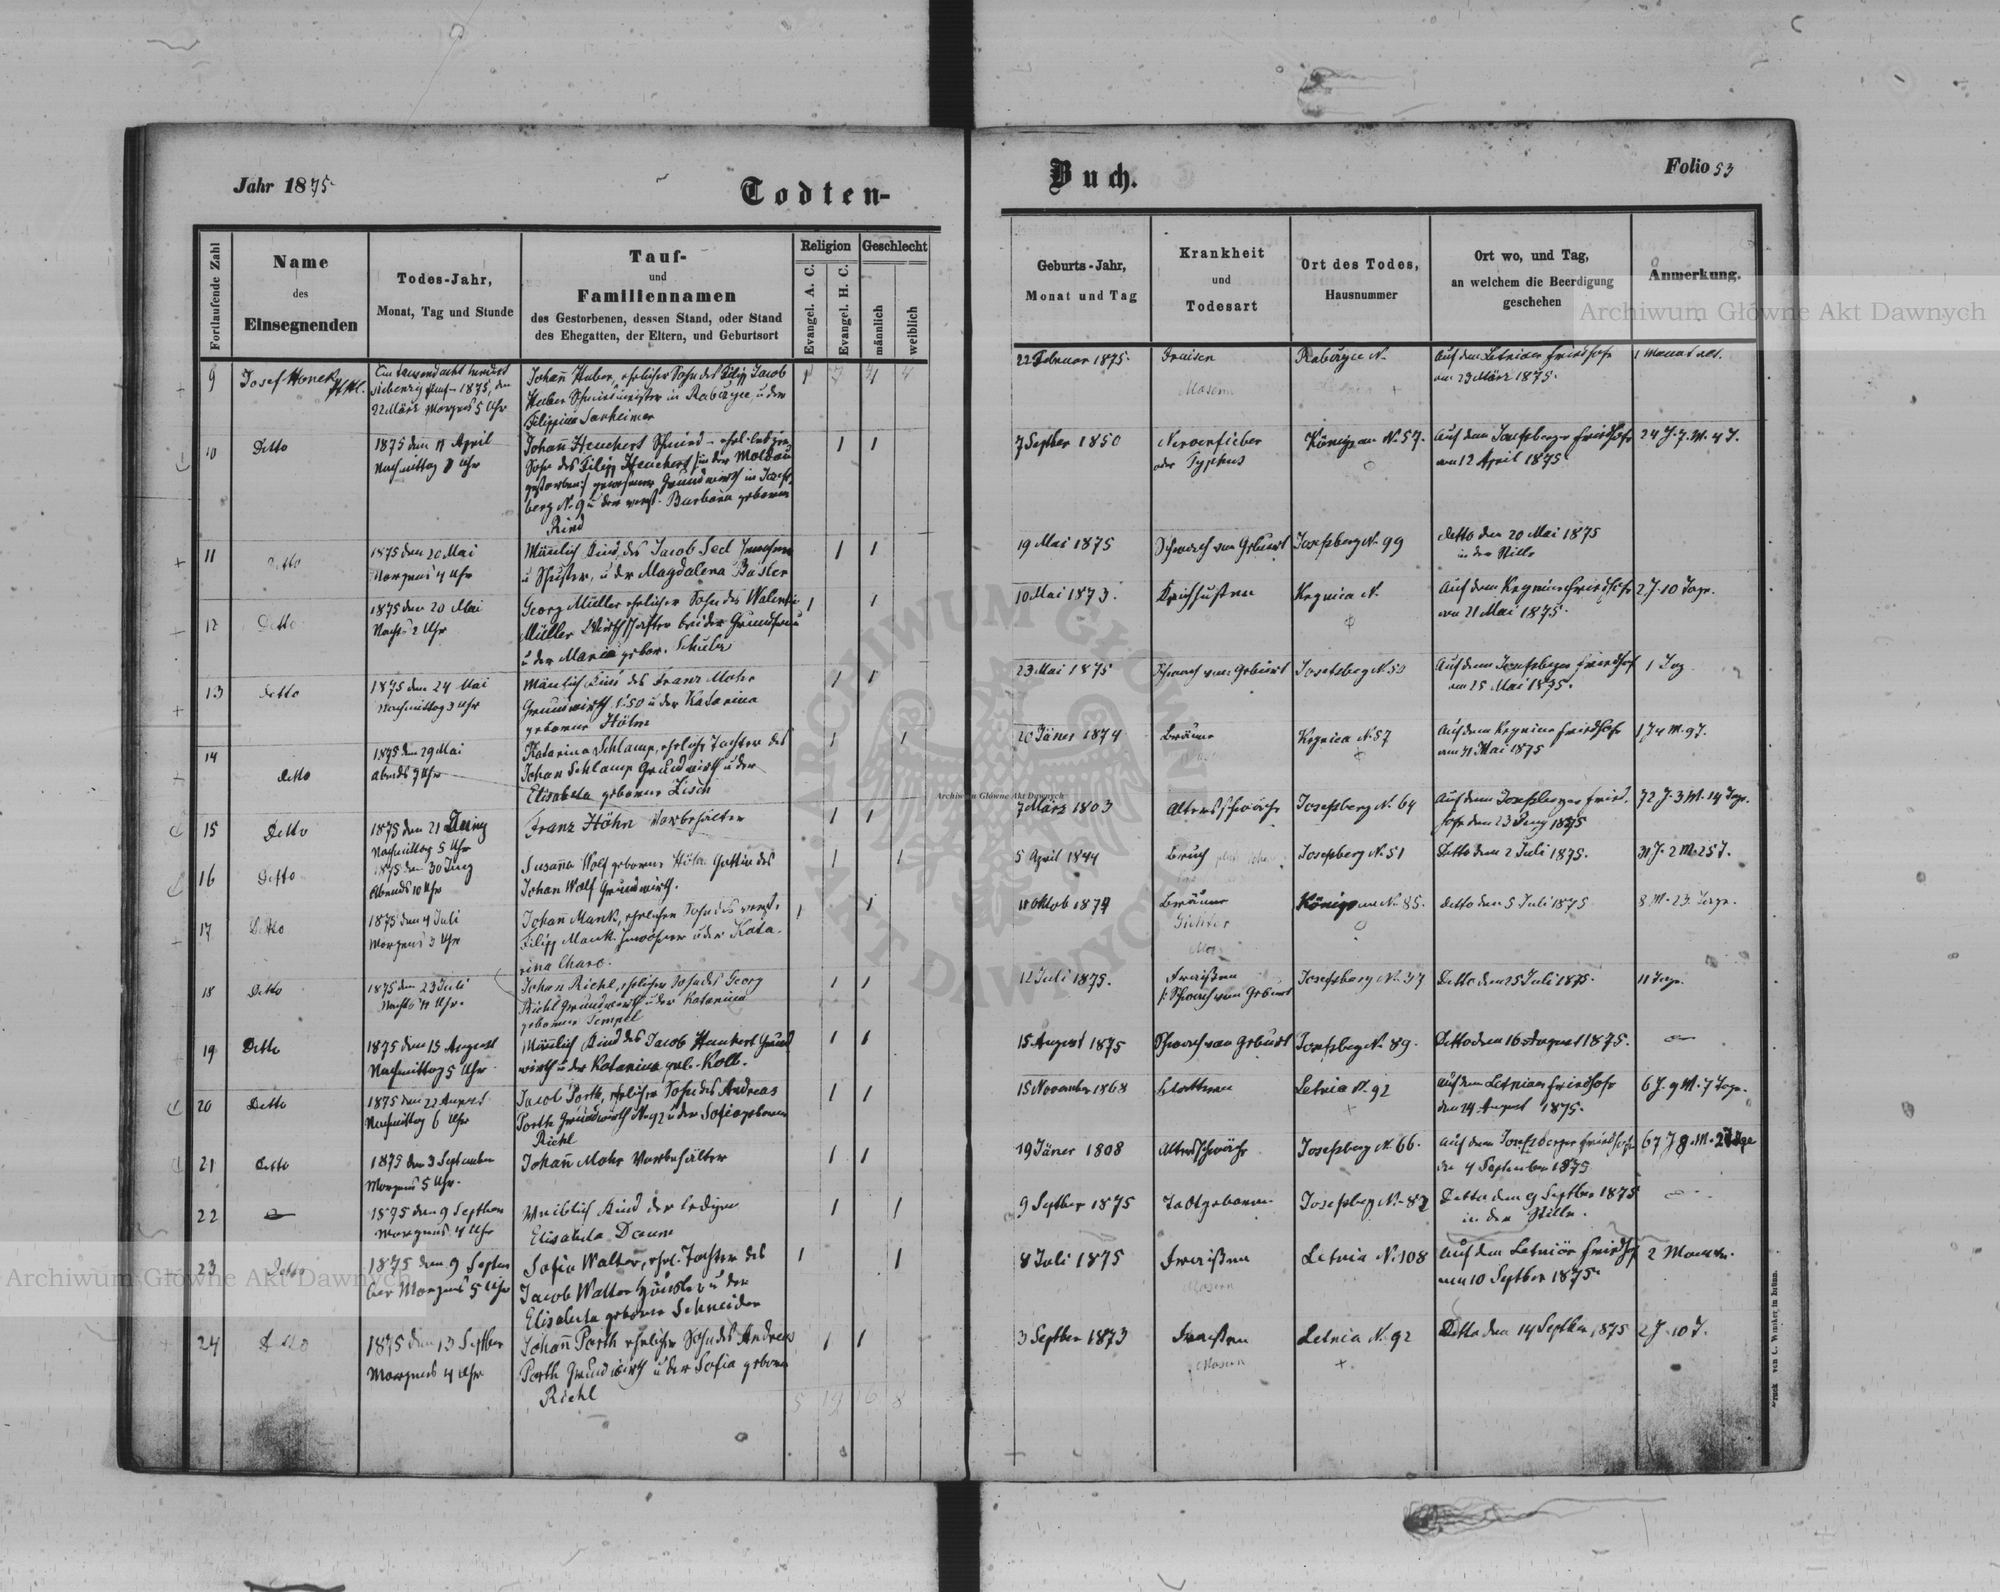 Jahr 1875.
Todten-
Buch.
Folio 53
Fortlaufende Zahl
Name
des
Einsegnenden
Todes-Jahr,
Monat, Tag und Stunde
Tauf-
und
Familiennamen
des Gestorbenen, dessen Stand, oder Stand
des Ehegatten, der Eltern, und Geburtsort
Religion
Evangel. A. C.
Evangel. H. C.
Geschlecht
männlich
weiblich
Geburts-Jahr,
Monat und Tag
Krankheit
und
Todesart
Ort des Todes,
Hausnummer
Ort wo, und Tag,
an welchem die Beerdigung
geschehen
Anmerkung.
9
Josef Honek
Ein tausend acht hundert
siebenzig fünf - 1875, den
22 März Morgens 5 Uhr
Johann Huber, ehelicher Sohn des Filipp Jacob
Huber Schmiedmeister in Rabczyce u der
Filippina Sanheimer
22 Februar 1875.
Fraisen
Masern
Rabczyce N.
Auf dem Letniaer Friedhofe
am 23 März 1875.
1 Monat alt.
10
Detto
1875 den 11 April
Nachmittag Uhr
Johann Heuchert Schmied - ehel. lediger
Sohn des Filipp Heuchert in der Moldau
gestorben gewesener Grundwirth in Josefs
berg N. 9 u der verst. Barbara geborne
Rind
1 1
7 Septber 1850
Nervenfieber
oder Typhus
Königsau N. 57.
Auf dem Josefsberger Friedhofe
am 12 April 1875.
24 J. 7. M. 4 T.
11
Detto
1875 den 20 Mai
Morgens 4 Uhr
Mänlich Kind, des Jacob Sed Inwohner
u Schuster, u der Magdalena Basler
1 1
19 Mai 1875
Schwach von Geburt
Josefsberg N. 99
detto den 20 Mai 1875
in der Stille
12
Detto
1875 den 20 Mai
Nachts 2 Uhr
Georg Müller ehelicher Sohn des Walentin
Müller Wirthschafter bei der Grundfrau
u der Maria gebor. Schulz
1 1
10 Mai 1873.
Keichhusten
Kegnica N.
Auf dem Kegnicer Friedhofe
am 21 Mai 1875.
2 J. 10 Tage.
13
Detto
1875 den 24 Mai
Nachmittag 3 Uhr
Mänlich Kind des Franz Mohr
Grundwirth N. 50 u der Katarina
geborne Höhn
1 1
23 Mai 1875
Schwach von Geburt
Josefsberg N. 50
Auf dem Josefsberger Friedhofe
am 25 Mai 1875.
1 Tag
14
detto
1875 den 29 Mai
Abends 9 Uhr
Katarina Schlamp, eheliche Tochter des
Johan Schlamp Grundwirth u der
Elisabeta geborne Zisch
1 1
20 Jäner 1874
Bräune
Kegnica N. 57
Auf dem Kegnicer Friedhofe
am 31 Mai 1875
1 J 4 M. 9 T.
15
Detto
1875 den 21 Juny
Nachmittag 5 Uhr
Franz Höhn Vorbehälter
1 1
7 März 1803
Altersschwäche
Josefsberg N. 64
Auf dem Josefsberger Fried-
hofe den 23 Juny 1875
72 J. 3 M. 14 Tage.
16
Detto
1875 den 30 Juny
Abends 10 Uhr
Susanna Wolf geborne Höhn Gattin des
Johan Wolf Grundwirth.
1 1
5 April 1844
Bruch
Josefsberg N. 51
Detto den 2 Juli 1875.
31 J. 2 M. 25 T.
17
Detto
1875 den 4 Juli
Morgens 3 Uhr
Johann Mank, ehelicher Sohn des verst.
Filipp Mank. Inwohner u der Kata-
rina Charc.
1 1
11 Oktob 1874
Bräune
Königsau N. 85.
detto den 5 Juli 1875
8 M. 23. Tage.
18
Detto
1875 den 23 Juli
Nachts 11 Uhr.
Johan Richl, ehelicher Sohn des Georg
Richl Grundwirth u der Katarina
geborne Tempel
1 1
12 Juli 1875.
Fraißen
Schwach von Geburt
Josefsberg N. 37
Detto den 25 Juli 1875.
11 Tage.
19
Detto
1875 den 15 August
Nachmittag 5 Uhr
Mänlich Kind des Jacob Heuchert Grund
wirth u der Katarina geb. Koll.
1 1
15 August 1875
Schwach von Geburt
Josefsberg N. 89.
Detto den 16 August 1875.
20
Detto
1875 den 22 August
Nachmittag 6 Uhr
Jacob Porth, ehelicher Sohn des Andreas
Porth Grundwirth N. 92 u der Sofia geborne
Richl
1 1
15 November 1868
Blattern
Letnia N. 92
Auf dem Letniaer Friedhofe
den 24 August 1875.
6 J. 9 M. 7 Tage.
21
Detto
1875 den 3 September
Morgens 5 Uhr.
Johann Mohr Vorbehälter
1 1
19 Jäner 1808
Altersschwäche
Josefsberg N. 66.
Auf dem Josefsberger Friedhofe
den 4 September 1875
67 J 8. M.
22
1875 den 9 Septber
Morgens 4 Uhr
Weiblich Kind der ledigen
Elisabeta Daum
1 1
9 Septber 1875
Todtgeboren
Josefsberg N. 82
Detto den 9 Septber 1875
in der Stille.
23
Detto
1875 den 9 Septem
ber Morgens 5 Uhr
Sofia Walter, ehel. Tochter des
Jacob Walter Häusler u der
Elisabeta geborne Schneider
1 1
8 Juli 1875
Fraißen
Masern
Letnia N. 108
Auf dem Letniaer Friedhof
am 10 Septber 1875.
2 Monate.
24
Detto
1875 den 13 Septber
Morgens 4 Uhr
Johann Porth ehelicher Sohn des Andreas
Porth Grundwirth u der Sofia geborne
Richl
1 1
3 Septber 1873
Fraißen
Masern
Letnia N. 92
Detto den 14 Septber 1875
2 J. 10 T.
5 19 16 8
Archiwum Główne Akt Dawnych
Archiwum Główne Akt Dawnych
Archiwum Główne Akt Dawnych
ARCHIWUM GŁÓWNE AKT DAWNYCH